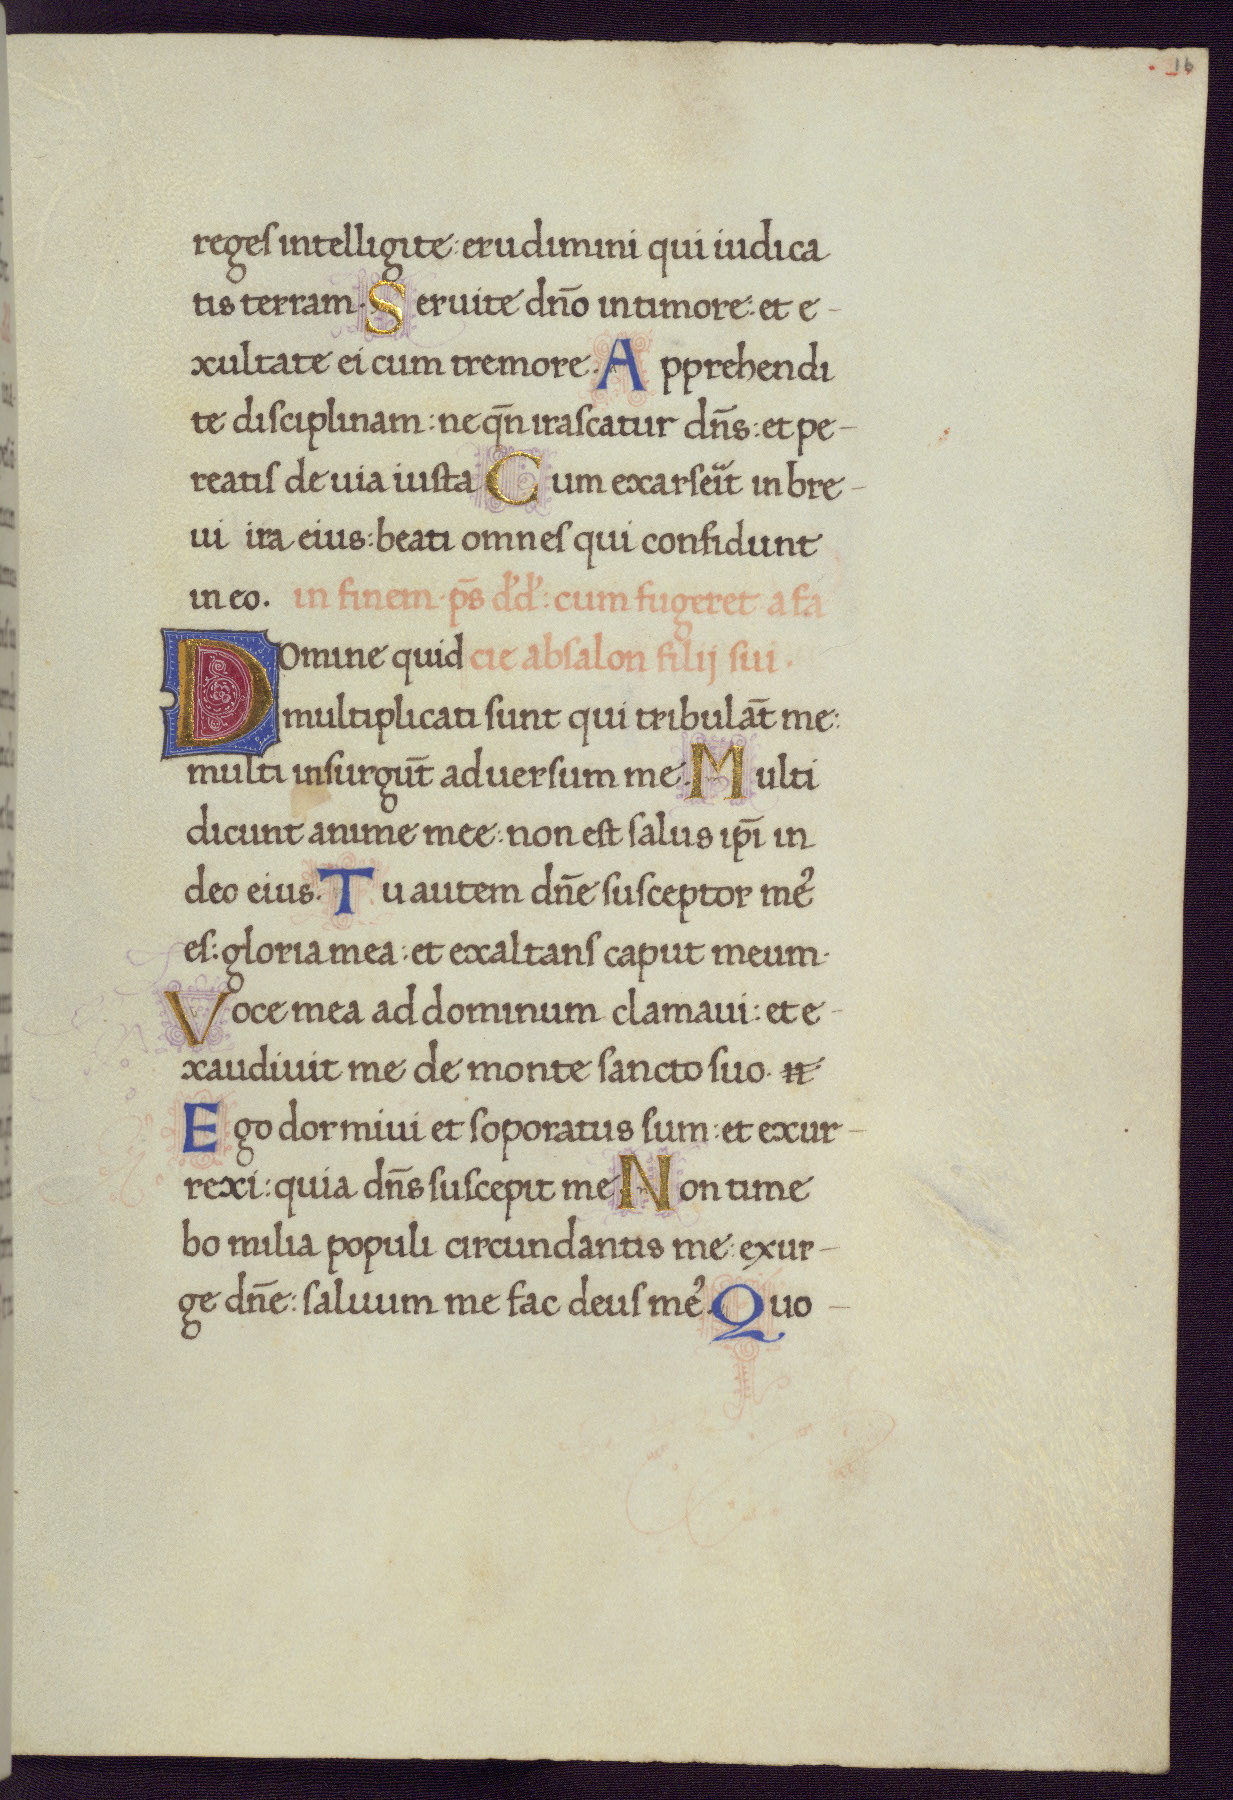 16
reges intelligite: erudimini qui iudica
tis terram. Seruite dn̄o in timore: et e-
xultate ei cum tremore. Apprehendi
te disciplinam: ne qn̄ irascatur dn̄s: et pe-
reatis de uia iusta Cum exarserit in bre-
ui ira eius: beati omnes qui confidunt
in eo. in finem. ps̄ d'd': cum fugeret a fa
Domine quid cie absalon filij sui.
multiplicati sunt qui tribulāt me:
multi insurgūt aduersum me. Multi
dicunt anime mee: non est salus ip̄i in
deo eius. Tu autem dn̄e susceptor me᾿
es: gloria mea: et exaltans caput meum.
Voce mea ad dominum clamaui: et e-
xaudiuit me de monte sancto suo.
Ego dormiui et soporatus sum: et exur-
rexi: quia dn̄s suscepit me. Non time
bo milia populi circundantis me: exur-
ge dn̄e: saluum me fac deus me᾿. Quo-